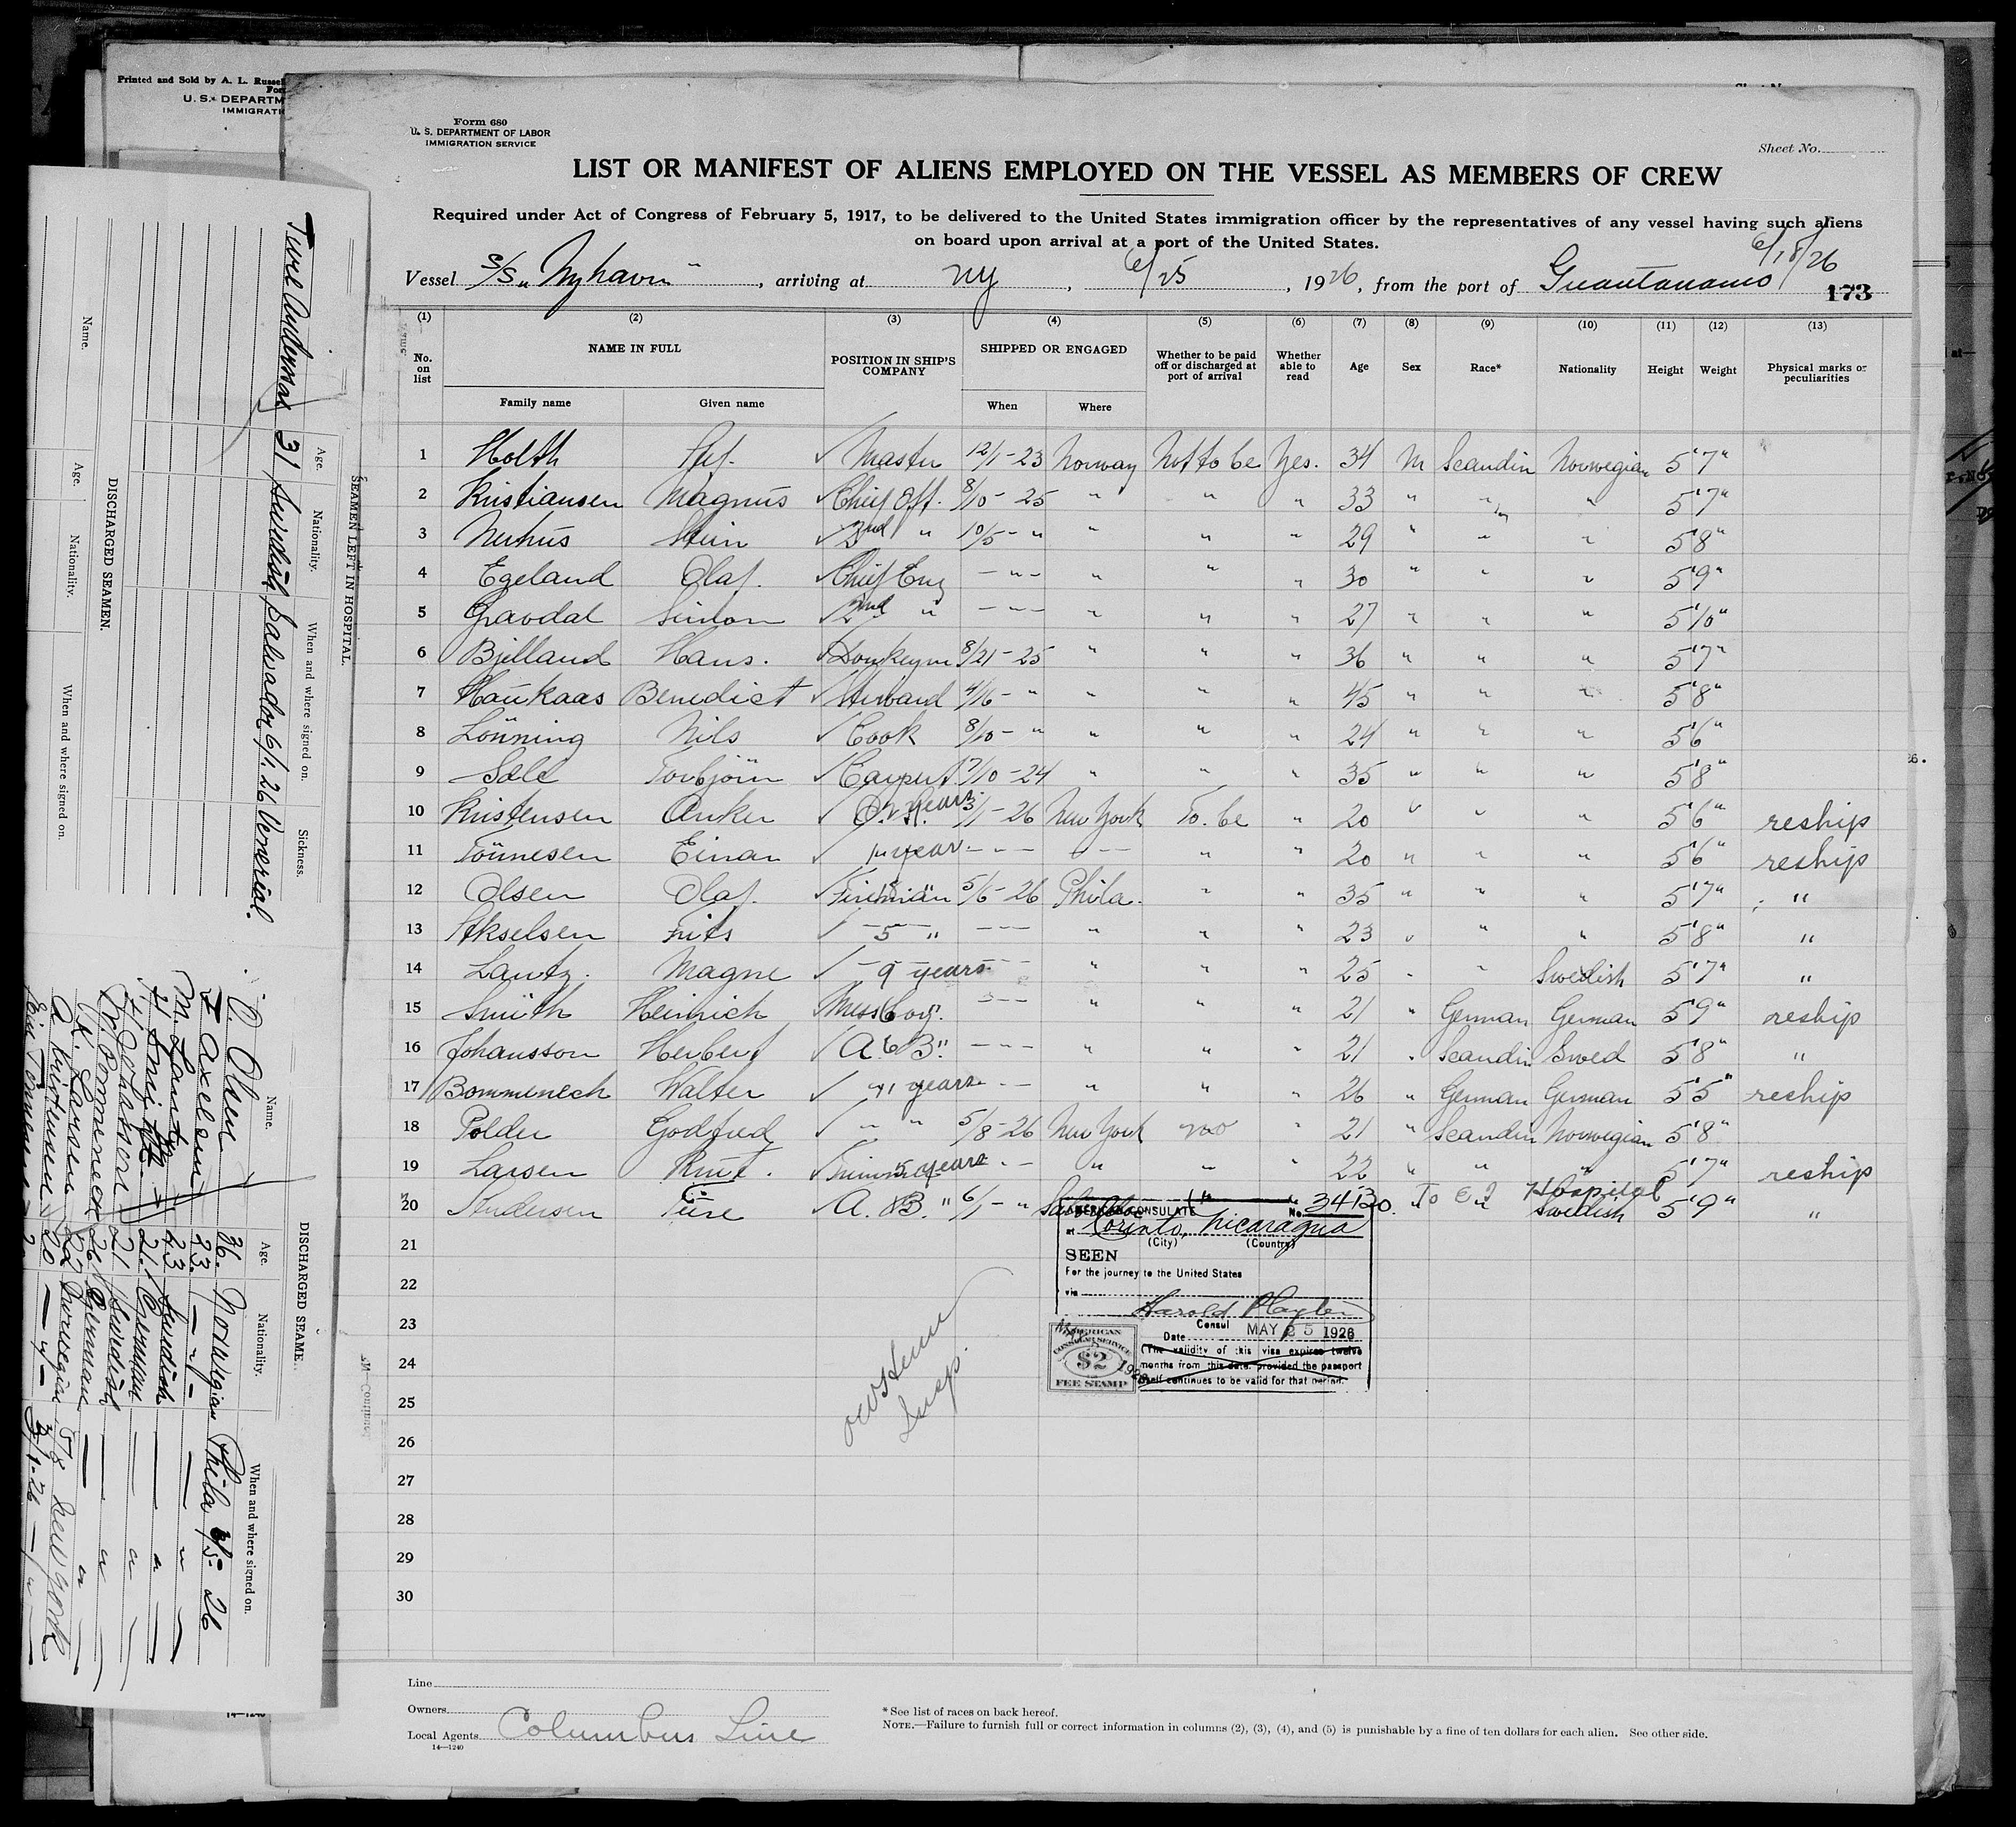 Printed and Sold by A. L. Russell
U. S. DEPARTM
IMMIGRATI
Form 680
U. S. DEPARTMENT OF LABOR
IMMIGRATION SERVICE
Sheet No.
LIST OR MANIFEST OF ALIENS EMPLOYED ON THE VESSEL AS MEMBERS OF CREW
Required under Act of Congress of February 5, 1917, to be delivered to the United States immigration officer by the representatives of any vessel having such aliens
on board upon arrival at a port of the United States.
Vessel S/S "Nyhavn", arriving at NY, 6/25, 1926, from the port of Guantanamo 6/18/26
173
(1) (2) (3) (4) (5) (6) (7) (8) (9) (10) (11) (12) (13)
No. on list NAME IN FULL POSITION IN SHIP'S COMPANY SHIPPED OR ENGAGED Whether to be paid off or discharged at port of arrival Whether able to read Age Sex Race* Nationality Height Weight Physical marks or peculiarities
Family name Given name When Where
1 Holth ✓ Master 12/1-23 Norway Not to be Yes. 34 M Scandin Norwegian 5'7"
2 Kristiansen Magnus ✓ Chief Off. 8/10-25 " " " 33 " " " 5'7"
3 Nerhus Stein ✓ 2nd " 10/5-" " " " 29 " " " 5'8"
4 Egeland Olaf. ✓ Chief Eng -"- " " " 30 " " " 5'9"
5 Gravdal Simon ✓ 2nd " -"- " " " 27 " " " 5'10"
6 Bjelland Hans. ✓ Donkeym 8/21-25 " " " 36 " " " 5'7"
7 Haukaas Benedict ✓ Steward 4/16-" " " " 45 " " " 5'8"
8 Lönning Nils ✓ Cook 8/10-" " " " 24 " " " 5'6"
9 Sæle Torbjörn ✓ Carpent. 7/10-24 " " " 35 " " " 5'8"
10 Kristensen Anker ✓ O.S. years 3/1-26 New York To be " 20 " " " 5'6" reship
11 Tönnesen Einar ✓ 1 year --- --- " " 20 " " " 5'6" reship
12 Olsen Olaf. ✓ Fireman 5/6-26 Phila. " " 35 " " " 5'7" "
13 Akselsen Frits ✓ -5 " --- " " " 23 " " " 5'8" "
14 Lantz. Magne ✓ -9 years --- " " " 25 " " Swedish 5'7" "
15 Smith Heinrich Messboy. --- " " " 21 " German German 5'9" reship
16 Johansson Herbert ✓ A.B. 6 " --- " " " 21 " Scandin Swed 5'8" "
17 Bommeneck Walter ✓ " years --- " " " 26 " German German 5'5" reship
18 Polder Godfred ✓ " " 5/8-26 New York no " 21 " Scandin Norwegian 5'8"
19 Larsen Knut. ✓ Trimmer 5 years -- " " " 22 " " " 5'7" reship
20 Andersen Ture ✓ A.B. " 6/1-" To Hospital Swedish 5'9" "
21
22
23
24
25
26
27
28
29
30
AMERICAN CONSULATE No. 34130.
at Corinto, Nicaragua
(City) (Country)
SEEN
For the journey to the United States
via
Harold Playter
Consul
Date MAY 25 1926
(The validity of this visa expires twelve
months from this date, provided the passport
itself continues to be valid for that period.
AMERICAN
CONSULAR SERVICE
$2
FEE STAMP
Insp.
Line
Owners
Local Agents Columbus Line
14—1240
*See list of races on back hereof.
NOTE.—Failure to furnish full or correct information in columns (2), (3), (4), and (5) is punishable by a fine of ten dollars for each alien. See other side.
SEAMEN LEFT IN HOSPITAL.
Age. Nationality. When and where signed on. Sickness.
Ture Andersen 31 Swedish, Salvador 6/1 26 Venerial.
DISCHARGED SEAMEN.
Name. Age. Nationality. When and where signed on.
DISCHARGED SEAME
Name. Age. Nationality. When and where signed on.
O. Olsen 36. Norwegian Phila 6/5-26
F Axelsen 23. -"- — "
M. Lantz 23 Swedish — "
H Smith 21. German — "
H. Johansson 21 Swedish — "
W. Bommeneck 26 German — "
K. Larsen 22 Norwegian 5/8 New York
A. Kristensen 20 -"- 3/1-26 -"-
Ein Tönnesen